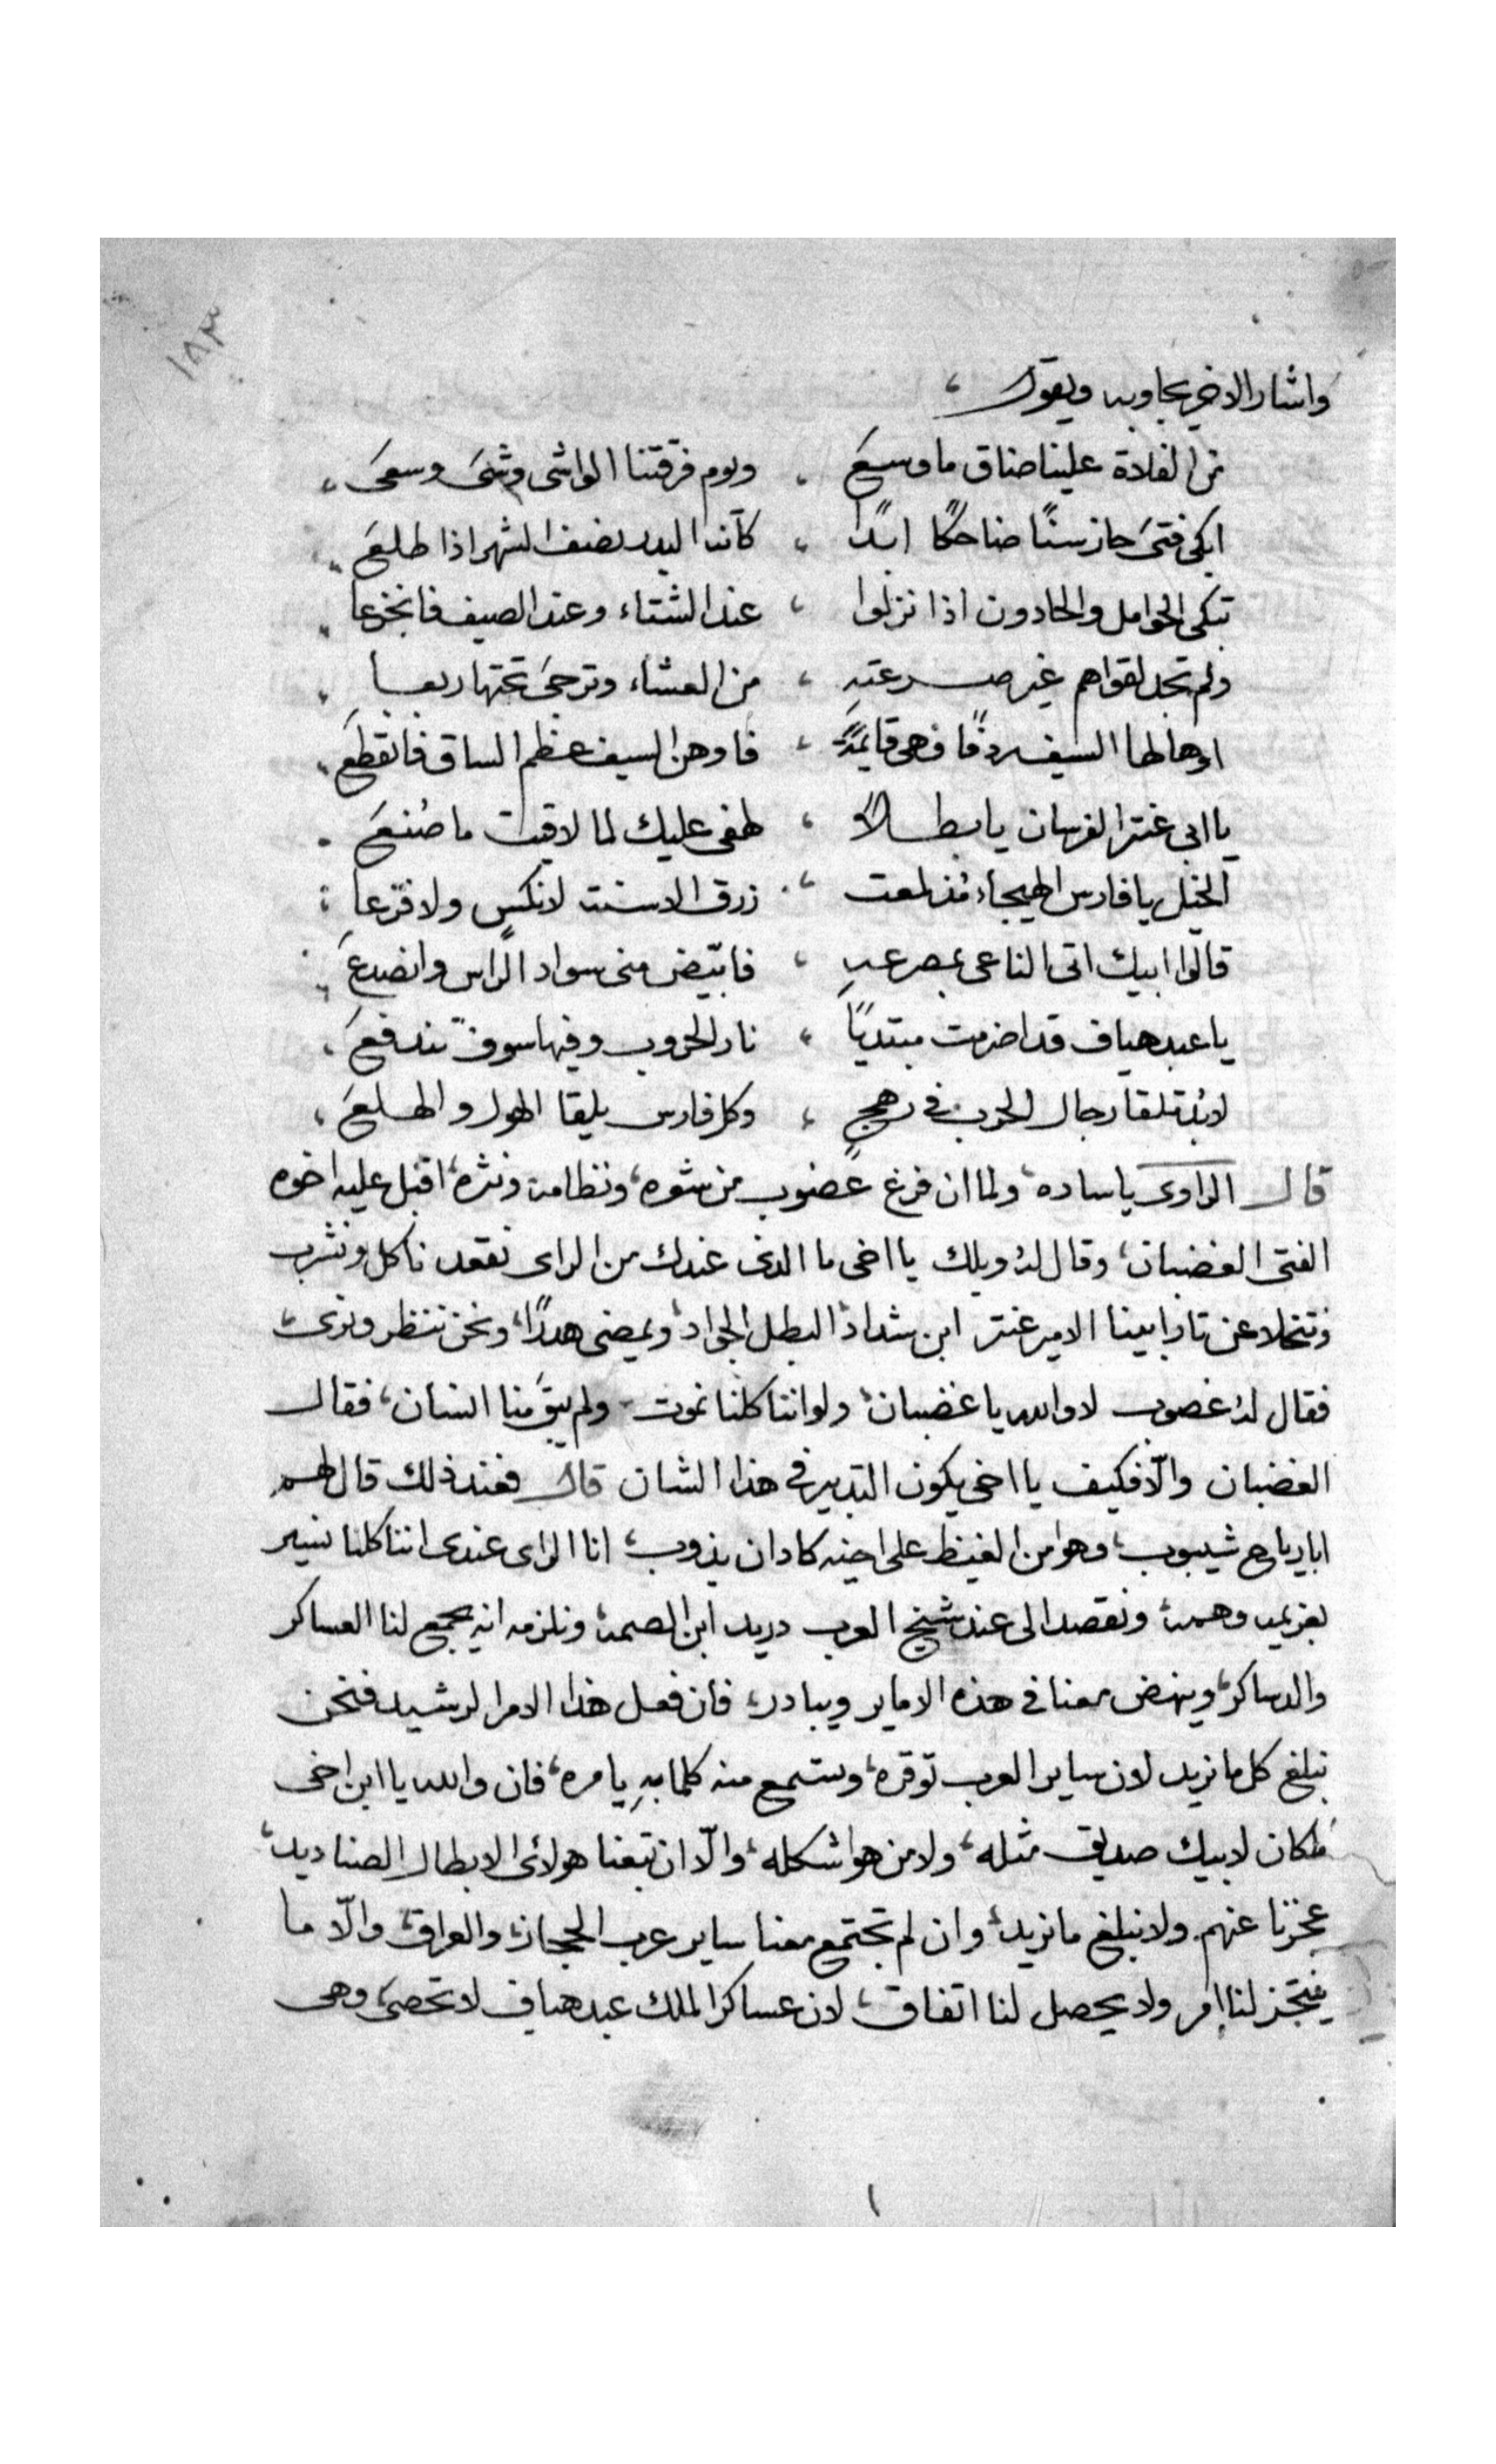 ١٨٣
واشار الاخر يجاوبه ويقول ،
من الفلاة علينا ضاق ما وسعَ ، ويوم فرقتنا الواشى وشىَ وسعىَ ،
ابكى فتىَ حاز سنًا ضاحكًا ابدًا ، كأنه البدر نصف الشهر اذا طلعَ ،
تبكى الحوامل والحادون اذا نزلوا ، عند الشتاء وعند الصيف فانجزعا ،
ولم تجد لقواهم غير صرعته ، من العشاء وترجىَ تحتها ربعا ،
اوهالها السيف ردفًا فهى قايمةً ، فاوهن السيف عظم الساق فانقطعَ ،
يا ابى عنتر الفرسان يا بطلاً ، لهفى عليك لما لاقيت ما صُنعَ .
الخيل يا فارس الهيجاء مُذ لمعت ، زرق الاسنت لا نكسٍ ولا فزعا :
قالوا ابيك اتى الناعى بمصرعهِ ، فابيّض منى سواد الراس وانصدعَ ،
يا عبد هياف قد اضرمت مبتديًا ، نار الحروب وفيها سوف تندفعَ ،
لابُدّ تلقا رجال الحرب فى رهجٍ ، وكل فارس يلقا الهول والهلعَ ،
قال الراوى يا ساده، ولما ان فرغ غصوب من شعره، ونظامه ونثره، اقبل عليه اخوه
الفتى الغضبان، وقال لهُ ويلك يا اخى ما الذى عندك من الراى نقعد ناكل ونشرب
ونتخلا عن تار ابينا الامير عنتر ابن شداد، البطل الجواد، ويمضى هدرًا، ونحن ننظر ونرى،
فقال لهُ غصوب لا والله يا غضبان، ولو اننا كلنا نموت ولم يبقَ منا انسان، فقال
الغضبان والّا فكيف يا اخى يكون التدبير فى هذا الشان قال فعند ذلك قال لهم
ابا رياح شيبوب، وهو من الغيظ على اخيه كاد ان يذوب، انا الراى عندى اننا كلنا نسير
بعزيمه وهمه، ونقصد الى عند شيخ العرب دريد ابن الصمه، ونلزمه انه يجمع لنا العساكر
والدساكر، وينهض معنا فى هذه الاماير ويبادر، فان فعل هذا الامر الرشيد فنحن
نبلغ كل ما نريد لان ساير العرب توقره، وتستمع منه كلما بهِ يامره، فان والله يا ابن اخى
ما كان لابيك صديق مثله، ولا من هو شكله، والّا ان تبعنا هولائى الابطال الصناديد،
عجزنا عنهم ولا نبلغ ما نريد، وان لم تجتمع معنا ساير عرب الحجاز، والعراق، والّا ما
ينتجز لنا امر ولا يحصل لنا اتفاق، لان عساكر الملك عبد هياف لا تحصىَ، وهى
١